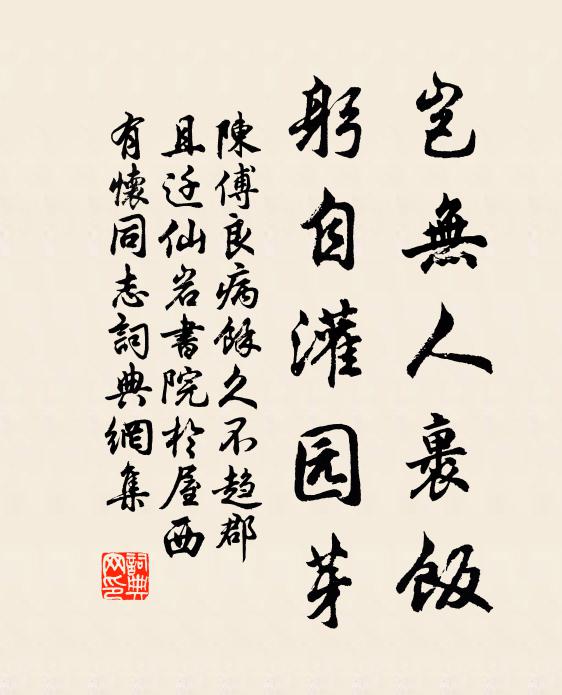 岂無人裹飯
躬自灌园芽
陳傅良病餘久不趋郡
且迁仙岩書院於屋西
有懷同志詞典網集
詞典网印